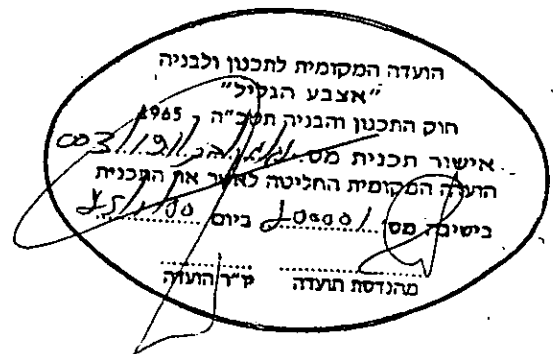 הועדה המקומית לתכנון ולבניה
"אצבע הגליל"
חוק התכנון והבניה תשכ"ה - 1965
אישור תכנית מס. 003/19/
הועדה המקומית החליטה לאשר את התכנית
בישיבה מס. 200001 ביום 25/1/00
מהנדסת הועדה יו"ר הועדה